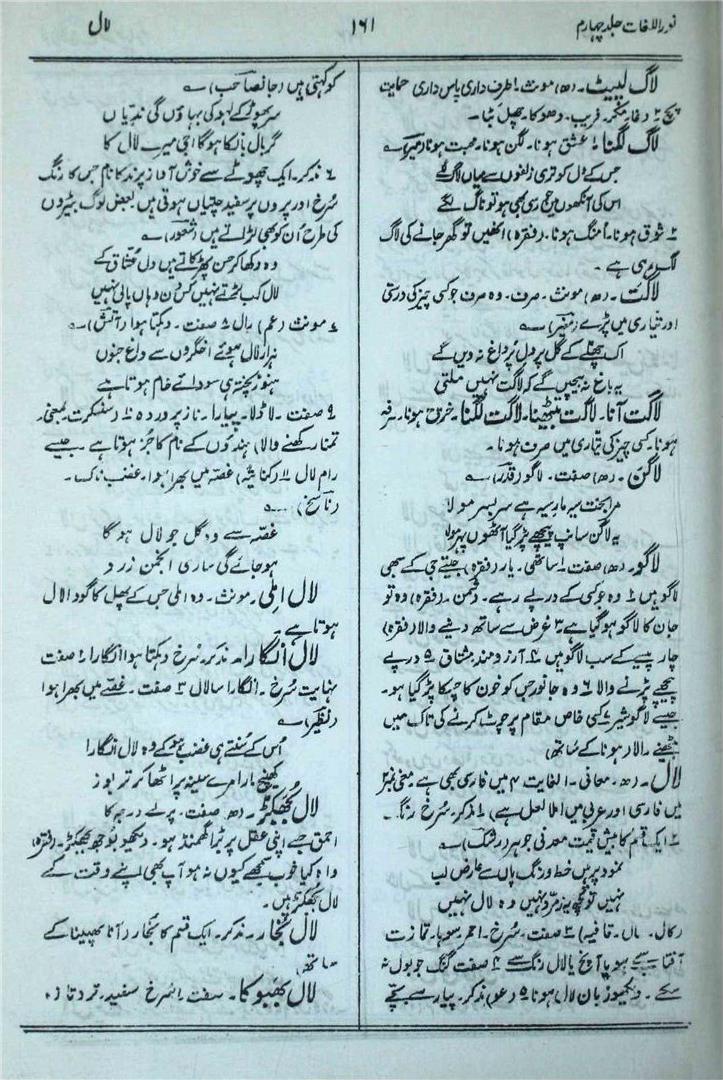 نور اللغات جلد چہارم
۱۶۱
لال
لاگ لپیٹ۔ (ھ) مونث۔ ۱ طرف داری پاس داری حمایت
پیچ ۲ دغا۔ مکر۔ فریب۔ دھوکا۔ چھل بٹا۔
لاگ لگنا ۱ عشق ہونا۔ لگن ہونا۔ محبت ہونا (میر)
جس کے دل کو تری زلفوں سے یہاں لاگ لگے
اس کی آنکھوں میں جو رسی بھی ہو تو ناگ لگے
۲ شوق ہونا۔ اُمنگ ہونا۔ (فقرہ) انھیں تو گھر جانے کی لاگ
لگ رہی ہے۔
لاگت۔ (ھ) مونث۔ صرف۔ وہ صرف جو کسی چیز کی درستی
اور تیاری میں پڑے
اک پھلے کے گل پر دل پُر داغ نہ دیں گے
یہ باغ نہ بیچیں گے کہ لاگت نہیں ملتی
لاگت آنا۔ لاگت بیٹھنا۔ لاگت لگنا۔ خرچ ہونا۔ صرفہ
ہونا۔ کسی چیز کی تیاری میں صرف ہونا۔
لاگن۔ (ھ) صفت۔ لاگو (قدر)
مرا بخت سیہ مار سیہ ہے سر بسر مولا
یہ لاگن سانپ پیچھے پڑ گیا آٹھوں پہر مولا
لاگو۔ (ھ) صفت ۱ ساتھی۔ یار (فقرہ) جیتے جی کے سبھی
لاگو ہیں ۲ وہ جو کسی کے درپے رہے۔ دشمن۔ (فقرہ) وہ تو
جان کا لاگو ہو گیا ہے ۳ غرض سے ساتھ دینے والا (فقرہ)
چار پیسے کے سب لاگو ہیں ۴ آرزو مند۔ مشتاق ۵ درپے
پیچھے پڑنے والا ۶ وہ جانور جس کو خون کا چسکا پڑ گیا ہو۔
جیسے لاگو شیر ۷ کسی خاص مقام پر چوٹ کرنے کی تاک میں
بیٹھنے والا (ہونا کے ساتھ)
لال۔ (ھ۔ معانی۔ الغایت ۴ میں فارسی بھی ہے معنی نمبر
میں فارسی اور عربی میں املا لعل ہے) ۱ مذکر۔ سُرخ رنگ۔
۲ ایک قسم کا بیش قیمت معدنی جوہر (رشک)
نمود پر ہیں خط و رنگ پاں سے عارض لب
نہیں تو کچھ یہ زمرد نہیں وہ لال نہیں
(کال۔ مال۔ قافیہ) ۳ صفت۔ سُرخ۔ احمر سوہا۔ تمازت
آفتاب سے ہو یا آنچ یا لال رنگ سے ۴ صفت گنگ جو بول نہ
سکے۔ دیکھو زبان لال ہونا ۵ (عو) مذکر۔ پیار سے بچے
کو کہتی ہیں (جانصاحب)
سر پھوٹ کے لہو کی بہاؤں گی ندیاں
گر بال بانکا ہوگا اجی میرے لال کا
۶ مذکر۔ ایک چھوٹے سے خوش آواز پرند کا نام جس کا رنگ
سُرخ اور پروں پر سفید چتیاں ہوتی ہیں۔ بعض لوگ بٹیروں
کی طرح اُن کو بھی لڑاتے ہیں (شعور)
وہ دکھا کر حسن پھڑکاتے ہیں دل عشاق کے
لال کب لڑتے نہیں کس دن وہاں پالی نہیں
۷ مونث (عم) رال ۸ صفت۔ دہکتا ہوا (آتش)
ہزار لال ہوئے اخگروں سے داغ جنوں
ہنوز پختہ ہی سودائے خام ہوتا ہے
۹ صفت۔ لاڈلا۔ پیارا۔ ناز پروردہ ۱۰ (سنسکرت۔ بمعنی۔
تمنا رکھنے والا) ہندوؤں کے نام کا جز ہوتا ہے۔ جیسے
رام لال ۱۱ (کنایۃً) غصہ میں بھرا ہوا۔ غضب ناک۔
(ناسخ)
غصہ سے وہ گل جو لال ہوگا
ہو جائے گی ساری انجمن زرد
لال املی۔ مونث۔ وہ املی جس کے پھل کا گودا لال
ہوتا ہے۔
لال انگارا۔ مذکر۔ سُرخ دہکتا ہوا انگارا ۲ صفت
نہایت سُرخ۔ انگارا سا لال ۳ صفت۔ غصے میں بھرا ہوا
(نظیر)
اُس کے سُنتے ہی غضب ہو کے وہ لال انگارا
کھینچ مارا مرے سینہ پر اٹھا کر تربوز
لال بُجھکڑ۔ (ھ) صفت۔ پرلے درجہ کا
احمق جسے اپنی عقل پر بڑا گھمنڈ ہو۔ دیکھو بوجھ بجھکڑ۔ (فقرہ)
واہ کیا خوب سمجھے کیوں نہ ہو آپ بھی اپنے وقت کے
لال بجھکڑ ہیں۔
لال بُخار۔ مذکر۔ ایک قسم کا بخار (آنا پھیلنا کے
ساتھ)
لال بھبوکا۔ صفت۔ ۱ سُرخ سفید۔ تر و تازہ۔